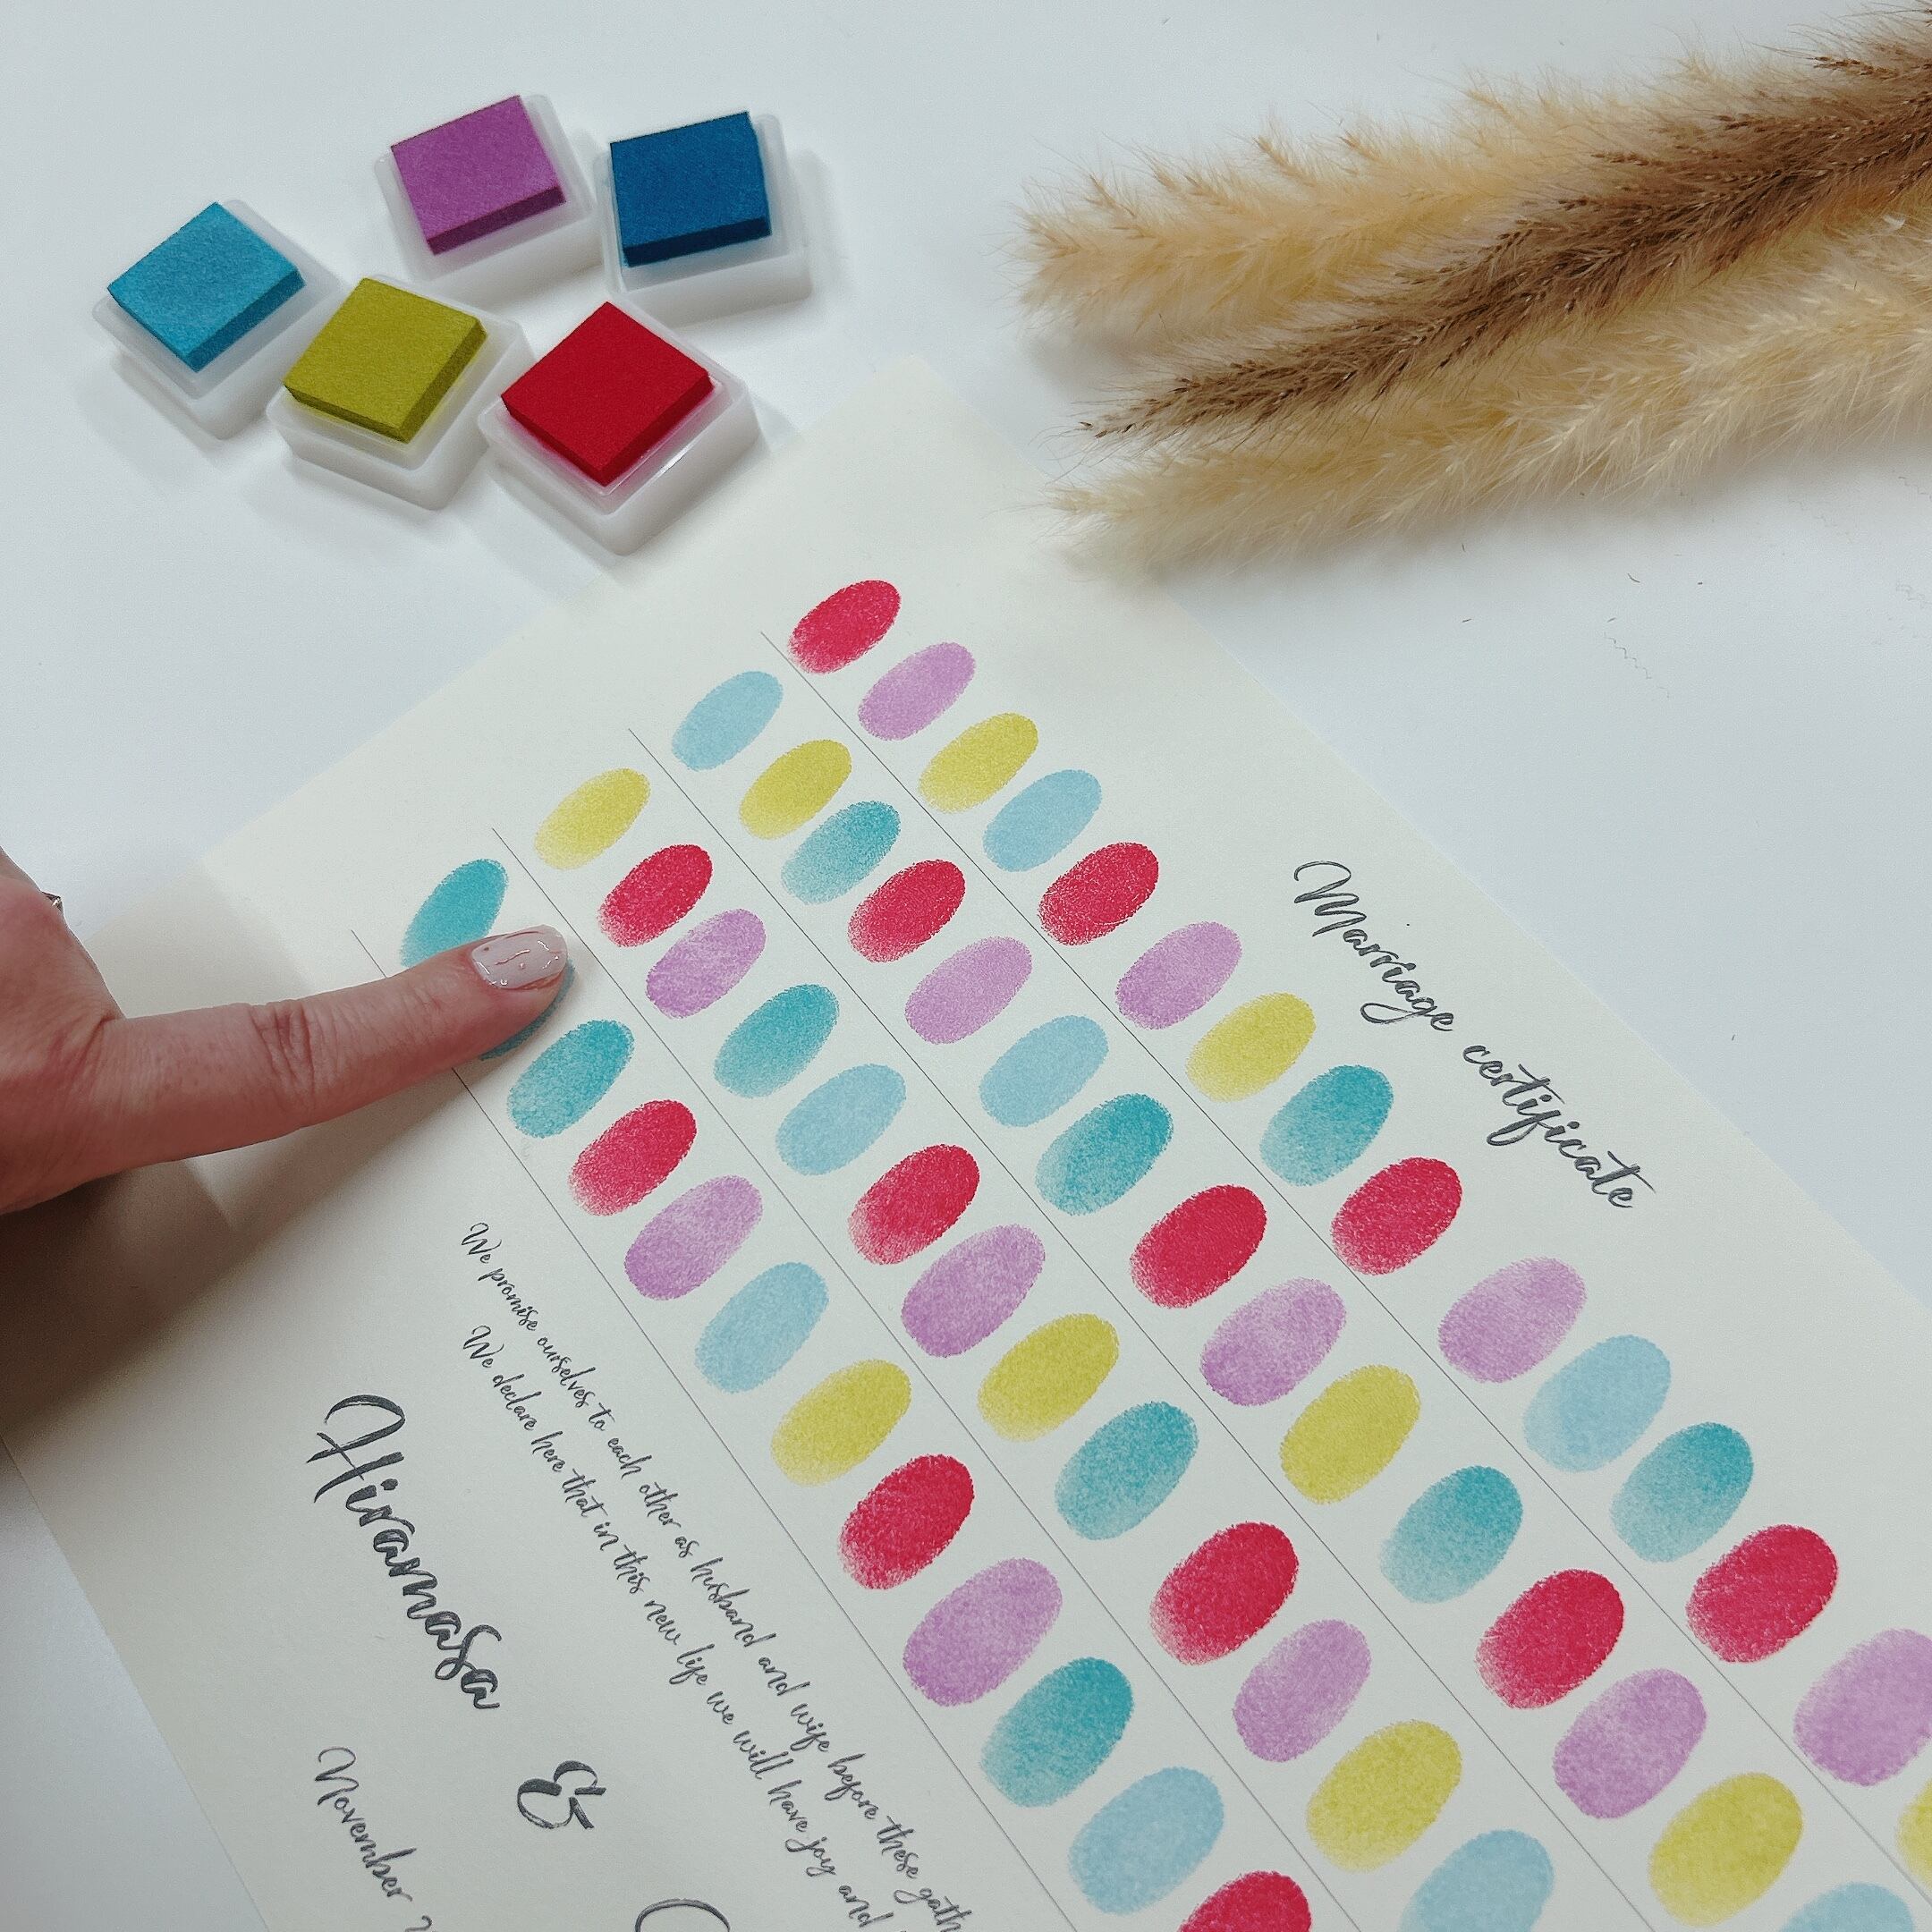 Marriage certificate
We promise ourselves to each other as husband and wife before these
We declare here that in this new life we will have joy and
Hiramasa
&
November